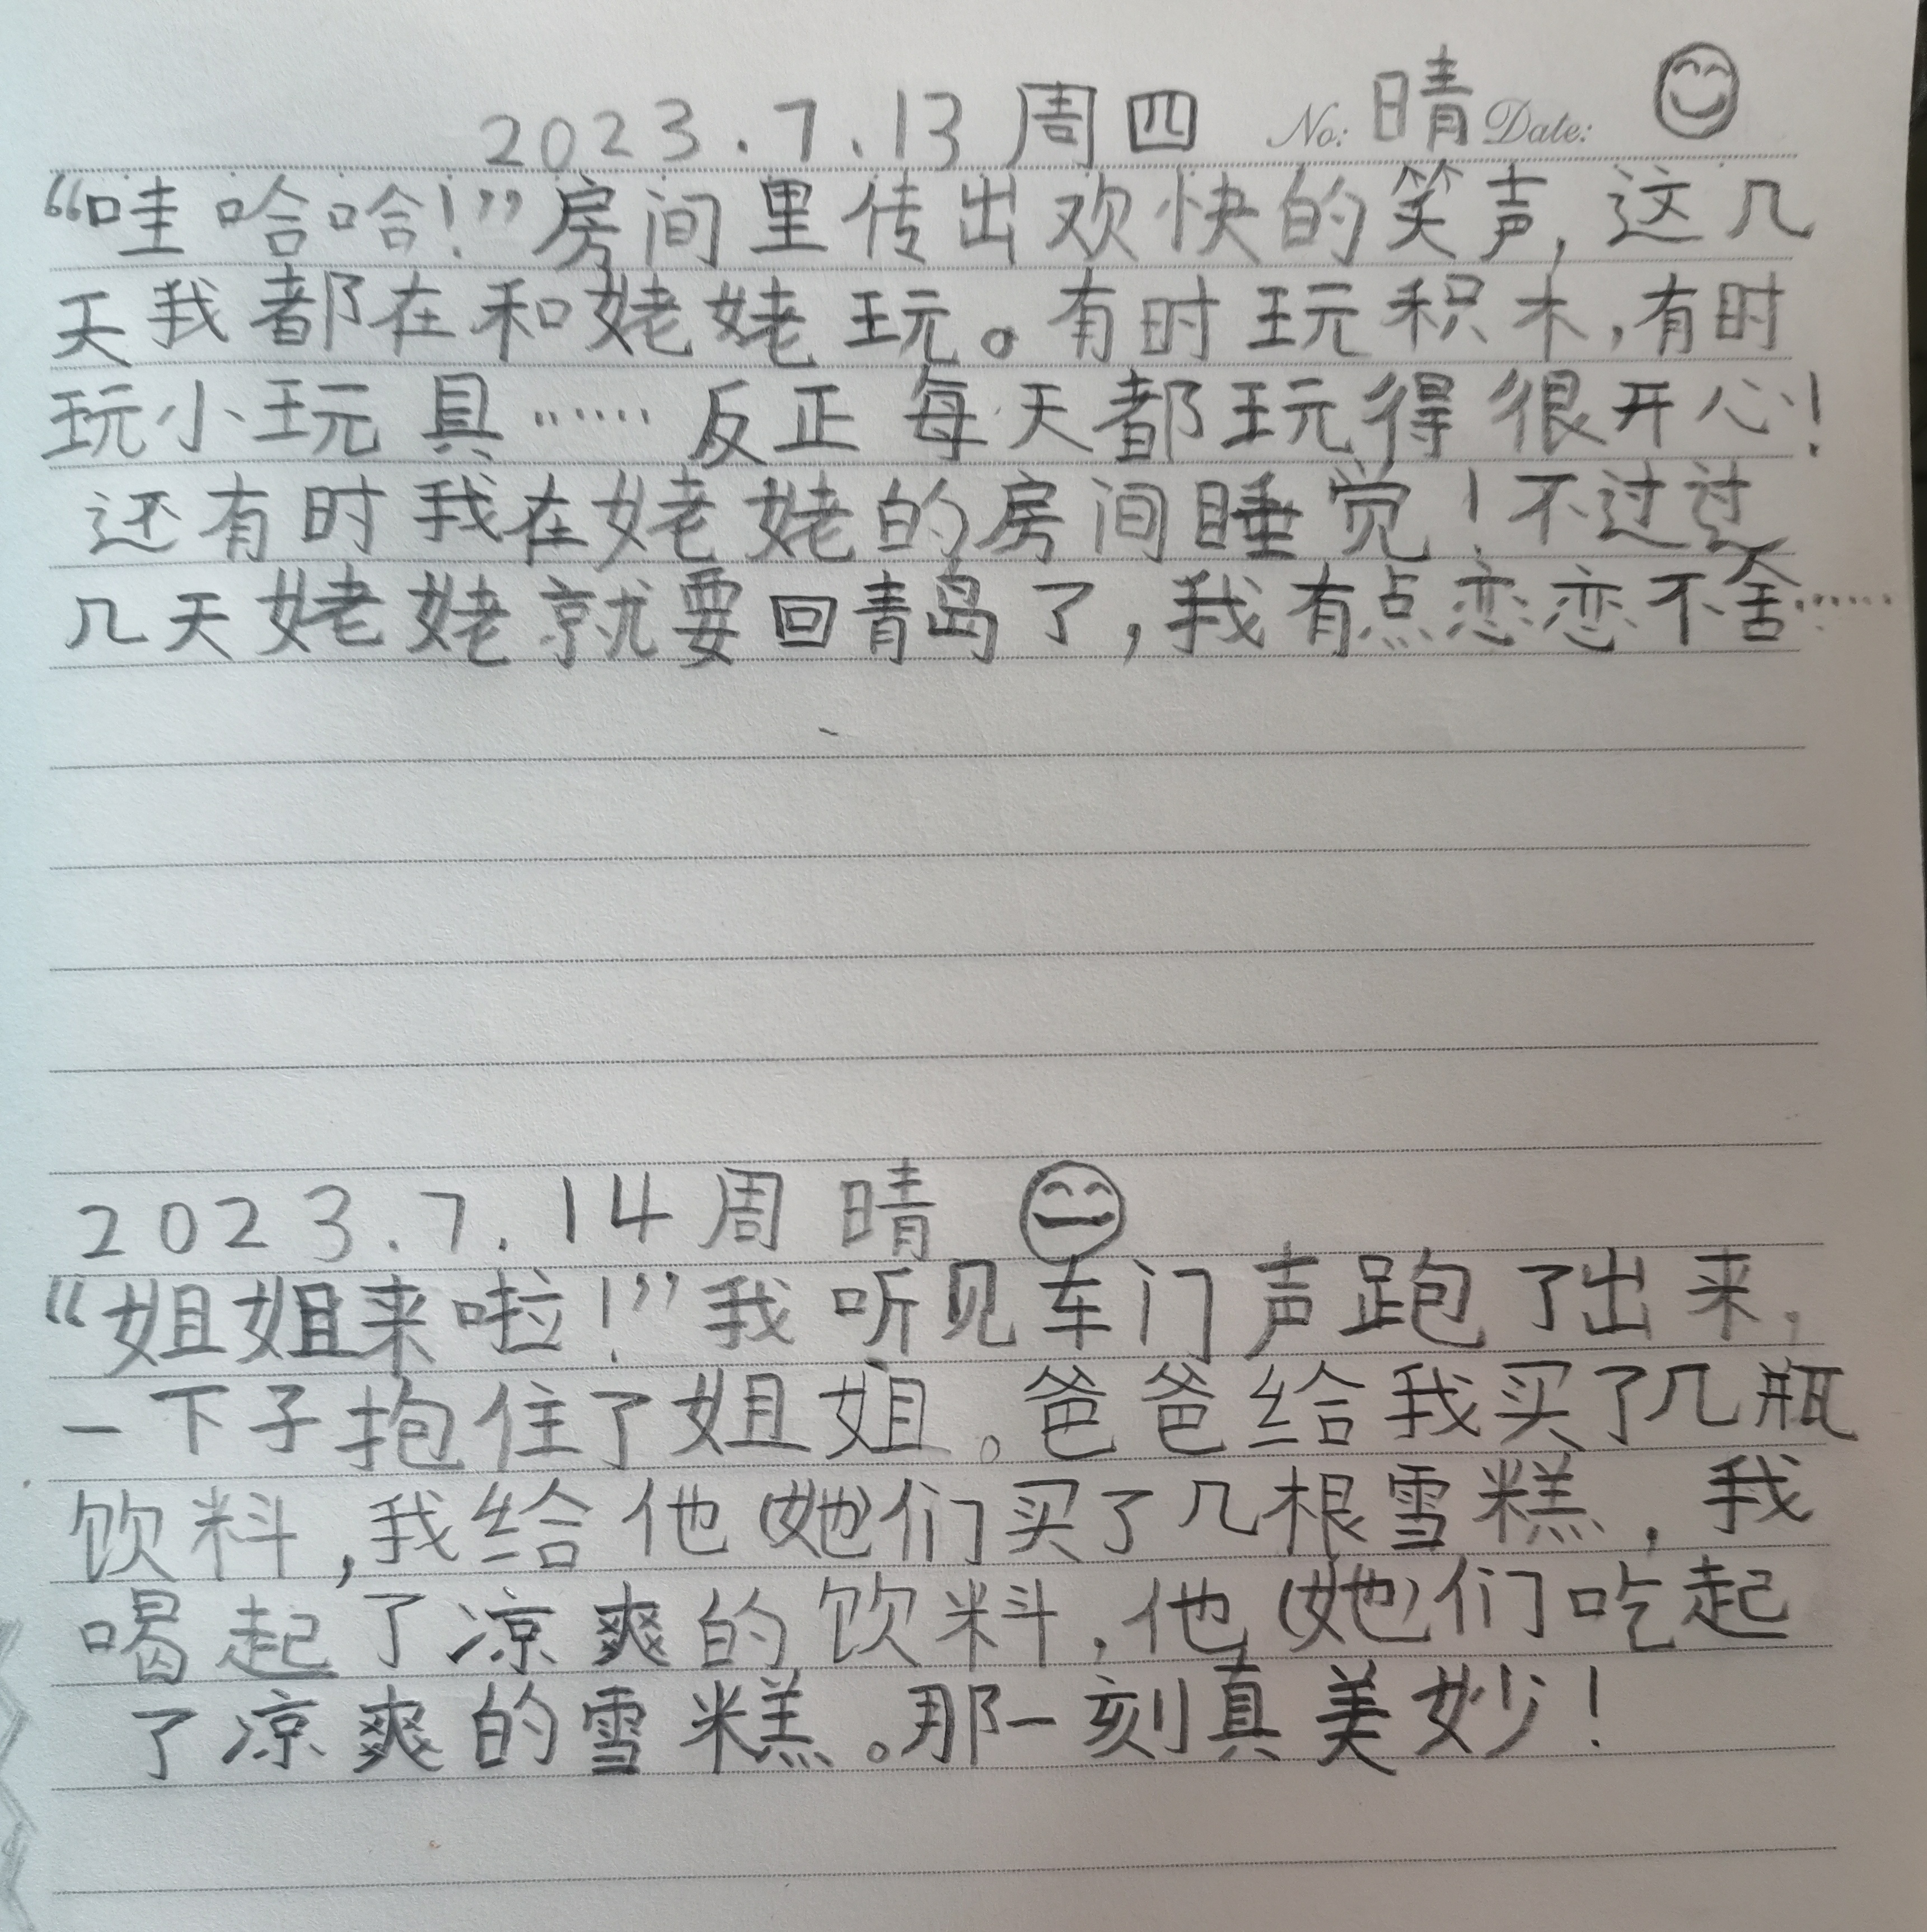 2023.7.13 周四 No: 晴 Date:
“哇哈哈!”房间里传出欢快的笑声,这几
天我都在和姥姥玩。有时玩积木,有时
玩小玩具……反正每天都玩得很开心!
还有时我在姥姥的房间睡觉!不过过
几天姥姥就要回青岛了,我有点恋恋不舍……
2023.7.14 周 晴
“姐姐来啦!”我听见车门声跑了出来,
一下子抱住了姐姐。爸爸给我买了几瓶
饮料,我给他(她)们买了几根雪糕,我
喝起了凉爽的饮料,他(她)们吃起
了凉爽的雪糕。那一刻真美妙!